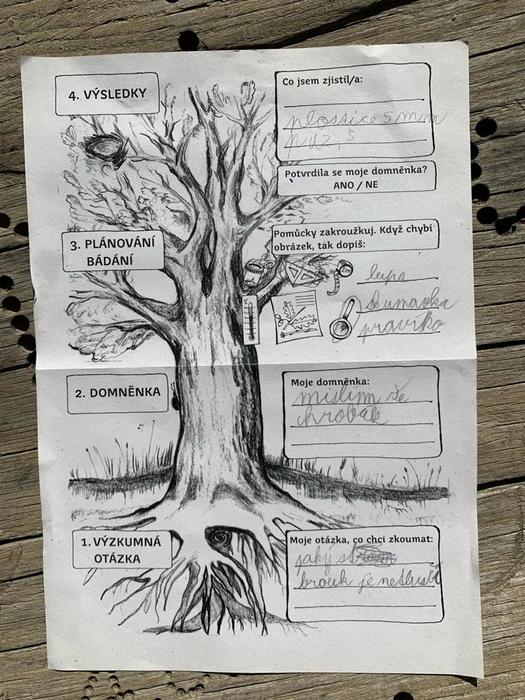 4. VÝSLEDKY
Co jsem zjistil/a:
ploštice 5 mm
Potvrdila se moje domněnka?
ANO / NE
3. PLÁNOVÁNÍ
BÁDÁNÍ
Pomůcky zakroužkuj. Když chybí
obrázek, tak dopiš:
lupa
pravítko
2. DOMNĚNKA
Moje domněnka:
mislim še
chrobák
1. VÝZKUMNÁ
OTÁZKA
Moje otázka, co chci zkoumat:
jaký
brouk je